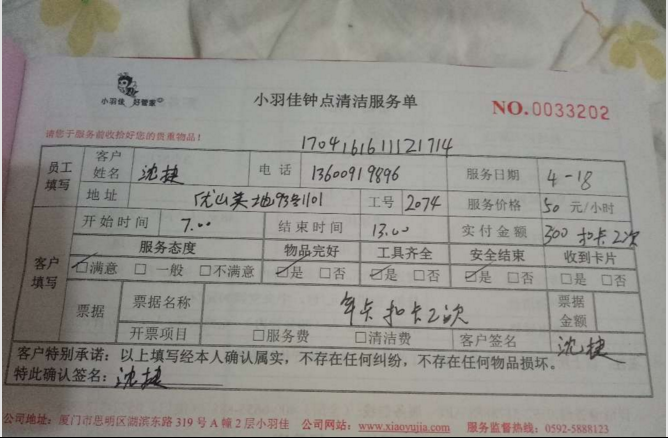 小羽佳 好管家
小羽佳钟点清洁服务单
NO.0033202
请您于服务前收捡好您的贵重物品!
1704161611121714
员工填写
客户姓名 沈捷 电话 13600919896 服务日期 4-18
地址 优山美地93号1101 工号 2074 服务价格 50 元/小时
客户填写
开始时间 7.00 结束时间 13.00 实付金额 300 扣卡2次
服务态度 物品完好 工具齐全 安全结束 收到卡片
☑满意 □一般 □不满意 ☑是 □否 ☑是 □否 ☑是 □否 □是 □否
票据 票据名称 年卡扣卡2次 票据金额
开票项目 □服务费 □清洁费 客户签名 沈捷
客户特别承诺:以上填写经本人确认属实,不存在任何纠纷,不存在任何物品损坏。
特此确认签名:沈捷
公司地址:厦门市思明区湖滨东路319号A幢2层小羽佳 公司网站:www.xiaoyujia.com 服务监督热线:0592-5888123